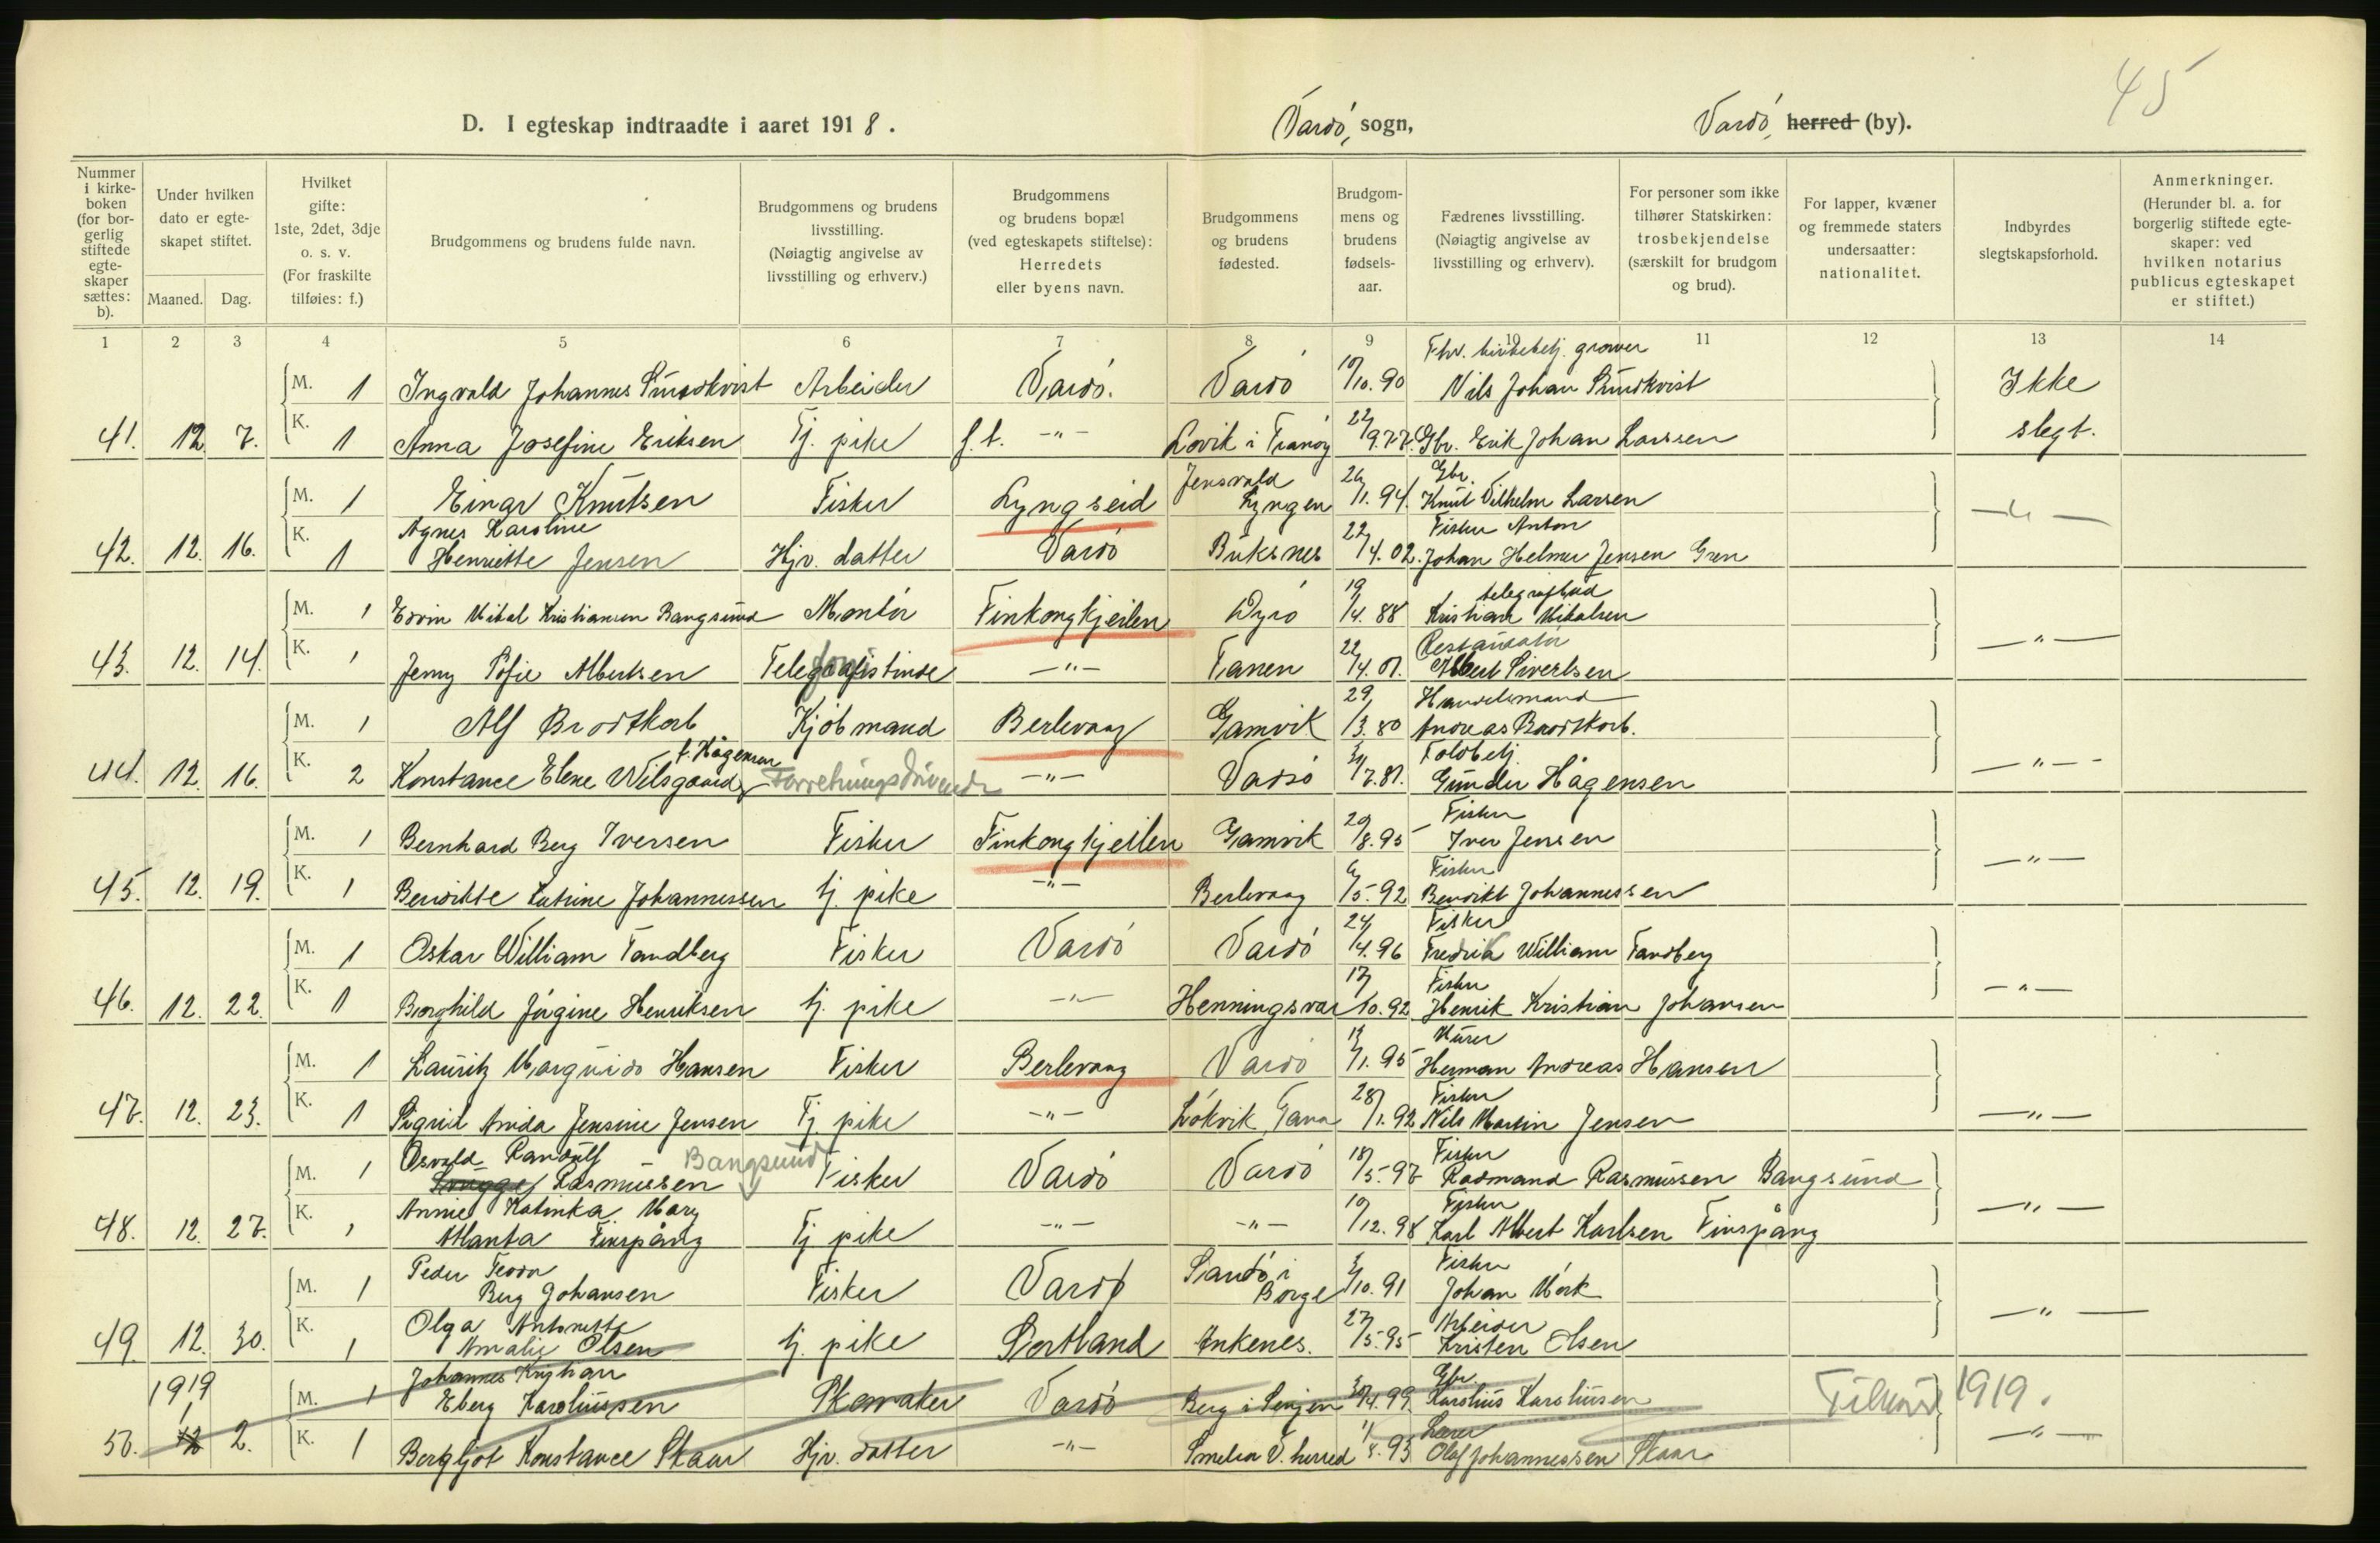 45
D. I egteskap indtraadte i aaret 1918. Vardö, sogn, Vardö, herred (by).
Nummer i kirkeboken (for borgerlig stiftede egteskaper sættes: b).
Under hvilken dato er egteskapet stiftet.
Maaned. Dag.
Hvilket gifte: 1ste, 2det, 3dje o. s. v. (For fraskilte tilføies: f.)
Brudgommens og brudens fulde navn.
Brudgommens og brudens livsstilling. (Nøiagtig angivelse av livsstilling og erhverv.)
Brudgommens og brudens bopæl (ved egteskapets stiftelse): Herredets eller byens navn.
Brudgommens og brudens fødested.
Brudgommens og brudens fødselsaar.
Fædrenes livsstilling. (Nøiagtig angivelse av livsstilling og erhverv).
For personer som ikke tilhører Statskirken: trosbekjendelse (særskilt for brudgom og brud).
For lapper, kvæner og fremmede staters undersaatter: nationalitet.
Indbyrdes slegtskapsforhold.
Anmerkninger. (Herunder bl. a. for borgerlig stiftede egteskaper: ved hvilken notarius publicus egteskapet er stiftet.)
1 2 3 4 5 6 7 8 9 10 11 12 13 14
Fhv. kirkebetj. graver
M. 1 Ingvald Johannes Sundkvist Arbeider Vardö. Vardö 10/10.90 Nils Johan Sundkvist Ikke
41. 12. 7. K. 1 Anna Josefine Eriksen Tj. pike f.t. -"- Lovik i Tranöy 22/9.77. Gbr. Erik Johan Larssen slegt.
Jensvold Gbr.
M. 1 Einar Knutsen Fisker Lyngseid Lyngen 26/1.94. Knut Vilhelm Larsen
Agnes Karoline Fisker Anton
42. 12. 16. K. 1 Henriette Jensen Hjv. datter Vardö Buksnes 22/4.02. Johan Helmer Jensen Gren -"-
telegrafbud
M. 1 Edvin Mikal Kristiansen Bangsund Montör Finkongkjeilen Dyrö 19/4.88 Kristian Mikalsen
Restauratör
43. 12. 14. K. 1 Jenny Sofie Albertsen Telefonistinde -"- Tanen 22/4.01. Albert Sivertsen -"-
Handelsmand
M. 1 Alf Brodtkorb Kjöbmand Berlevaag Gamvik 29/3.80 Andreas Brodtkorb.
f. Hågensen Toldbetj.
44. 12. 16. K. 2 Konstance Elene Wilsgaard Forretningsdrivende -"- Vadsö 3/7.81. Gunder Hågensen -"-
Fisker
M. 1 Bernhard Berg Iversen Fisker Finkongkjeilen Gamvik 20/8.95 Iver Jensen
Fisker
45. 12. 19. K. 1 Bendikte Katrine Johannessen tj. pike -"- Berlevaag 6/5.92 Bendikt Johannessen -"-
Fisker
M. 1 Oskar William Tandberg Fisker Vardö Vardö 24/4.96 Fredrik William Tandberg
Fisker
46. 12. 22. K. 1 Borghild Jörgine Henriksen tj. pike -"- Henningsvær 17/10.92 Henrik Kristian Johansen -"-
Murer
M. 1 Lauritz Marguido Hansen Fisker Berlevaag Vardö 13/1.95 Herman Andreas Hansen
Fisker
47. 12. 23. K. 1 Sigrid Amida Jensine Jensen Tj. pike -"- Lökvik, Tana 28/1.92 Nils Martin Jensen -"-
Osvald Randulf Bangsund Fisker
M. 1 Rasmussen Fisker Vardö Vardö 18/5.97 Radmand Rasmussen Bangsund
Annie Katinka Mary Fisker
48. 12. 27. K. 1 Atlanta Finspång Tj pike -"- -"- 19/12.98 Karl Albert Karlsen Finspång -"-
Peder Teodor Sandö i Fisker
M. 1 Berg Johansen Fisker Vardö Borge 3/10.91 Johan Mörk
Olga Antonette Arbeider
49. 12. 30. K. 1 Amalie Olsen tj. pike Sortland Ankenes. 27/5.95 Kristen Olsen -"-
1919 Johannes Kristian Gbr.
M. 1 Eberg Karoliussen Skomaker Vardö Berg i Senjen 30/4.99. Karolius Karoliussen Tilhörer 1919.
Lærer
50. 1 2. K. 1 Bergljot Konstance Skaar Hjv. datter -"- V. herred 11/8.93 Olaf Johannessen Skaar -"-